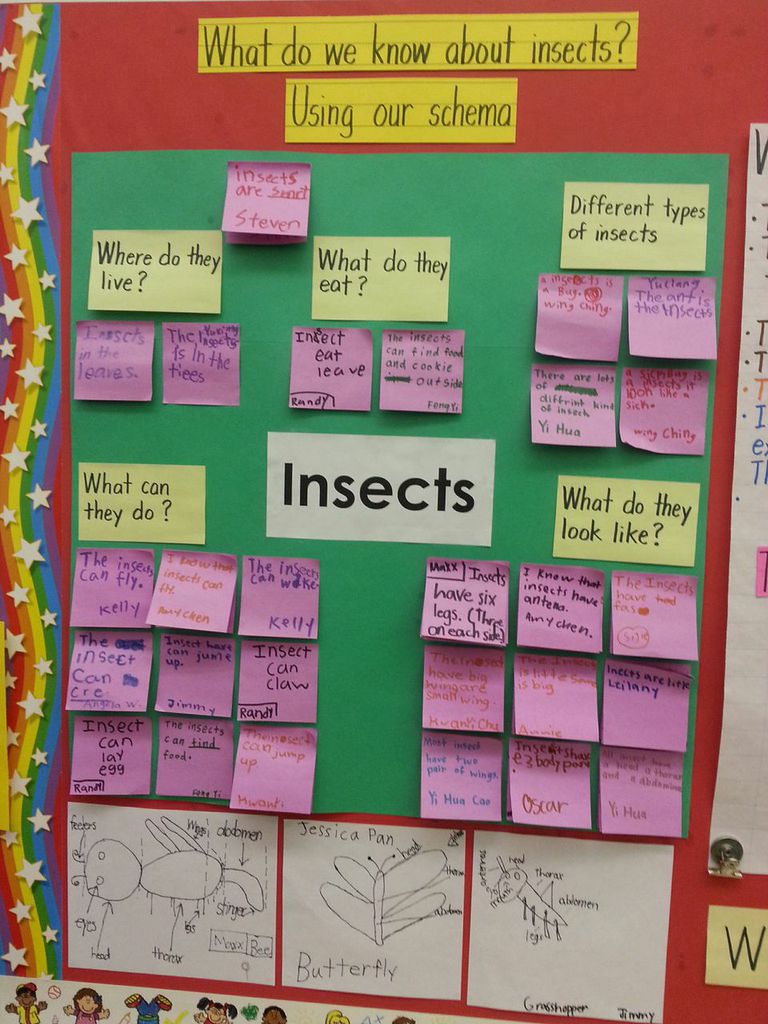 What do we know about insects?
Using our schema
insects
are smart
Steven
Where do they
live?
What do they
eat?
Different types
of insects
Insects
in the
leaves.
Yuxing
The Insects
is in the
trees
Insect
eat
leave
Randy
The insects
can find food
and cookie
outside
FengYi
a insects is
a Bug.
wing Ching.
Yuliang
The ant is
the insects
There are lots
of
diffrint kind
of insech
Yi Hua
a sickBug is
a insects it
look like a
sick.
wing Ching
Insects
What can
they do?
What do they
look like?
The insects
can fly.
Kelly
I know that
insects can
fly.
Amy chen
The insects
can
Kelly
The
insect
Can
cre
Angela W.
Insect have
can jump
up.
Jimmy
Insect
can
claw
Randy
Insect
can
lay
egg
Randy
The insects
can find
food.
Feng Yi
The insect
can jump
up
Huanti
Maxx Insects
have six
legs. (Three
on each side)
I know that
insects have
antena.
Amy chen.
The Insects
have
The insect
have big
wing are
small wing.
Huanyi Chu
The Insect
is little some
is big
Annie
Insects are little
Leilany
Most insect
have two
pair of wings.
Yi Hua Cao
Insects have
3 body part
Oscar
All insect have
a head a thorax
and a abdomen
Yi Hua
feelers
wings
abdomen
eyes
head
thorax
legs
stinger
Maxx Bee
Jessica Pan
head
thorax
abdomen
Butterfly
antennae
head
thorax
abdomen
legs
Grasshopper
Jimmy
W